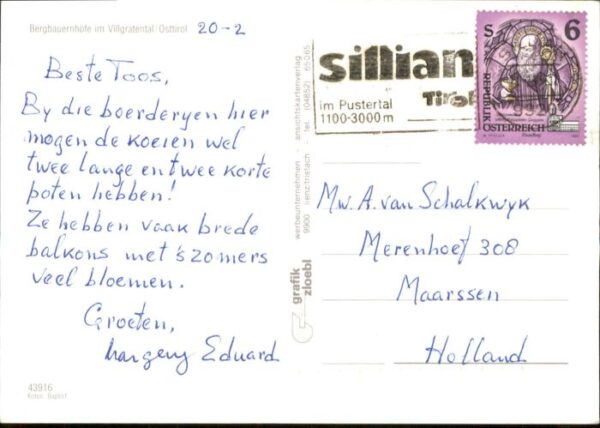 Bergbauernhöfe im Villgratental/Osttirol 20-2
Beste Toos,
By die boerderyen hier
mogen de koeien wel
twee lange en twee korte
poten hebben!
Ze hebben vaak brede
balkons met 's zomers
veel bloemen.
Groeten,
Eduard
43916
werbeunternehmen ansichtskartenverlag
9900 tel. (04852) 65065
grafik
zloebl
sillian
Tirol
im Pustertal
1100-3000 m
S 6
REPUBLIK
ÖSTERREICH
Mw. A. van Schalkwyk
Merenhoef 308
Maarssen
Holland